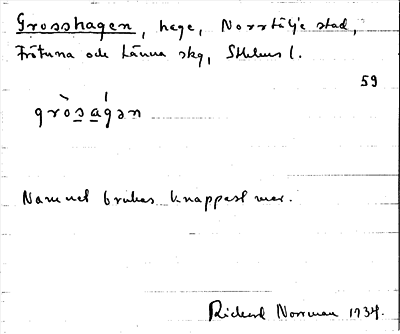 Grosshagen, hage, Norrtälje stad,
Frötuna och Länna skg, Sthlms l.
59
gròsagán
Namnet brukas knappast mer.
Rickard Norrman 1934.